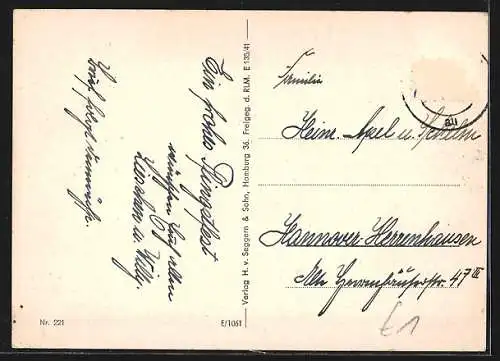 Ein frohes Pfingstfest
wünschen Euch allen
u. Willy.
Brief folgt
Verlag H. v. Seggern & Sohn, Hamburg 36. Freigeg. d. RLM. E 135/41
Familie
Hein. Apel u.
Hannover-Herrenhausen
Alte Herrenhäuserstr. 47 III
Nr. 221
E/1051
E1
au